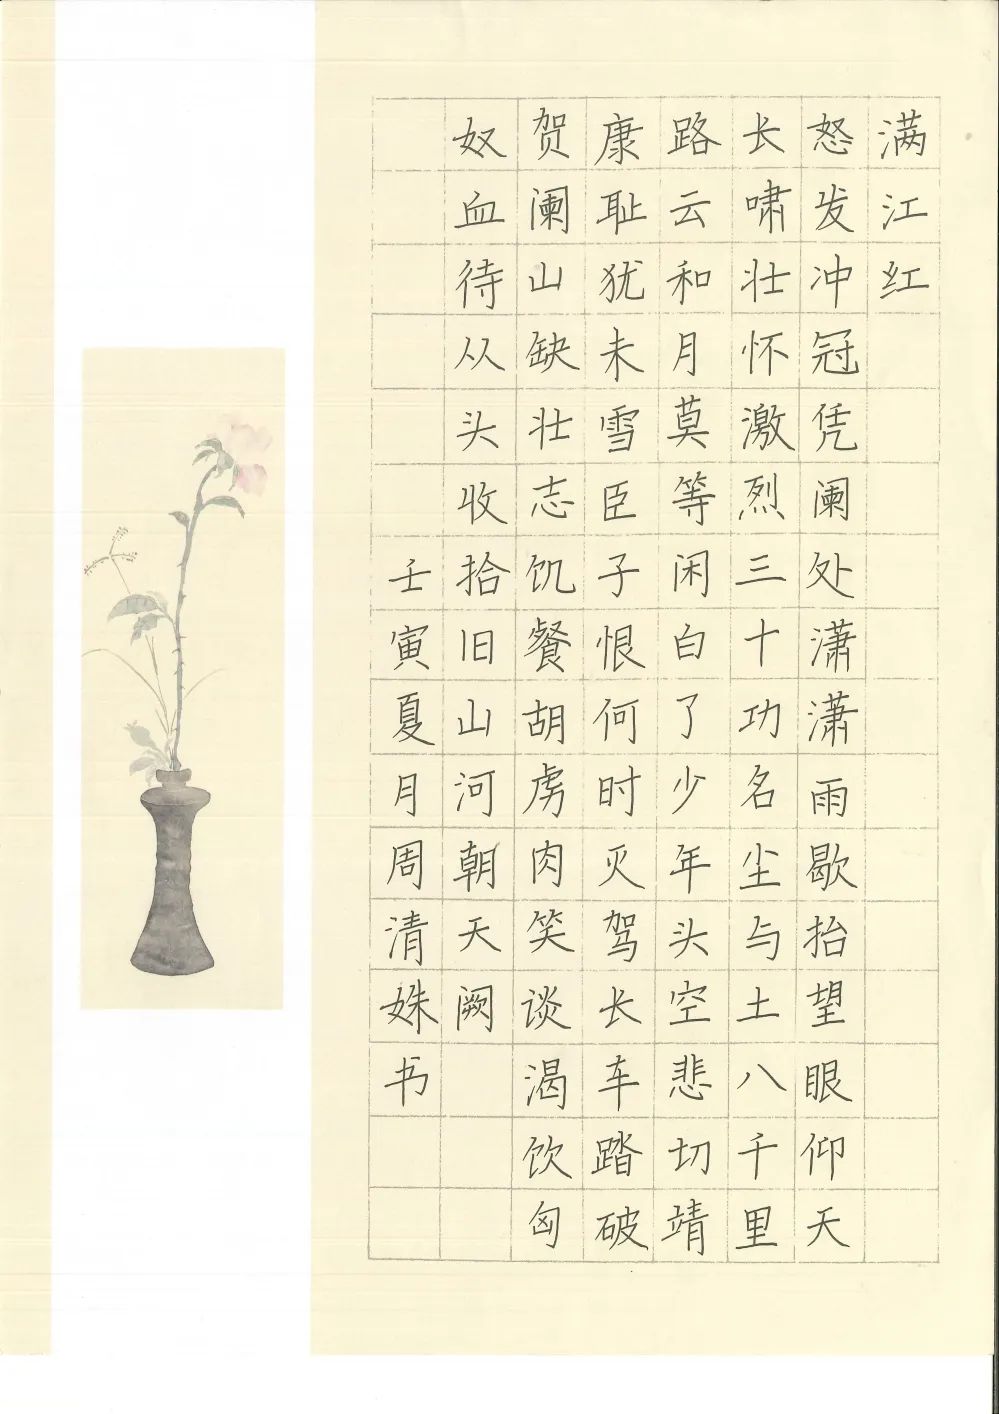 满江红
怒发冲冠凭阑处潇潇雨歇抬望眼仰天
长啸壮怀激烈三十功名尘与土八千里
路云和月莫等闲白了少年头空悲切靖
康耻犹未雪臣子恨何时灭驾长车踏破
贺阑山缺壮志饥餐胡虏肉笑谈渴饮匈
奴血待从头收拾旧山河朝天阙
壬寅夏月周清姝书